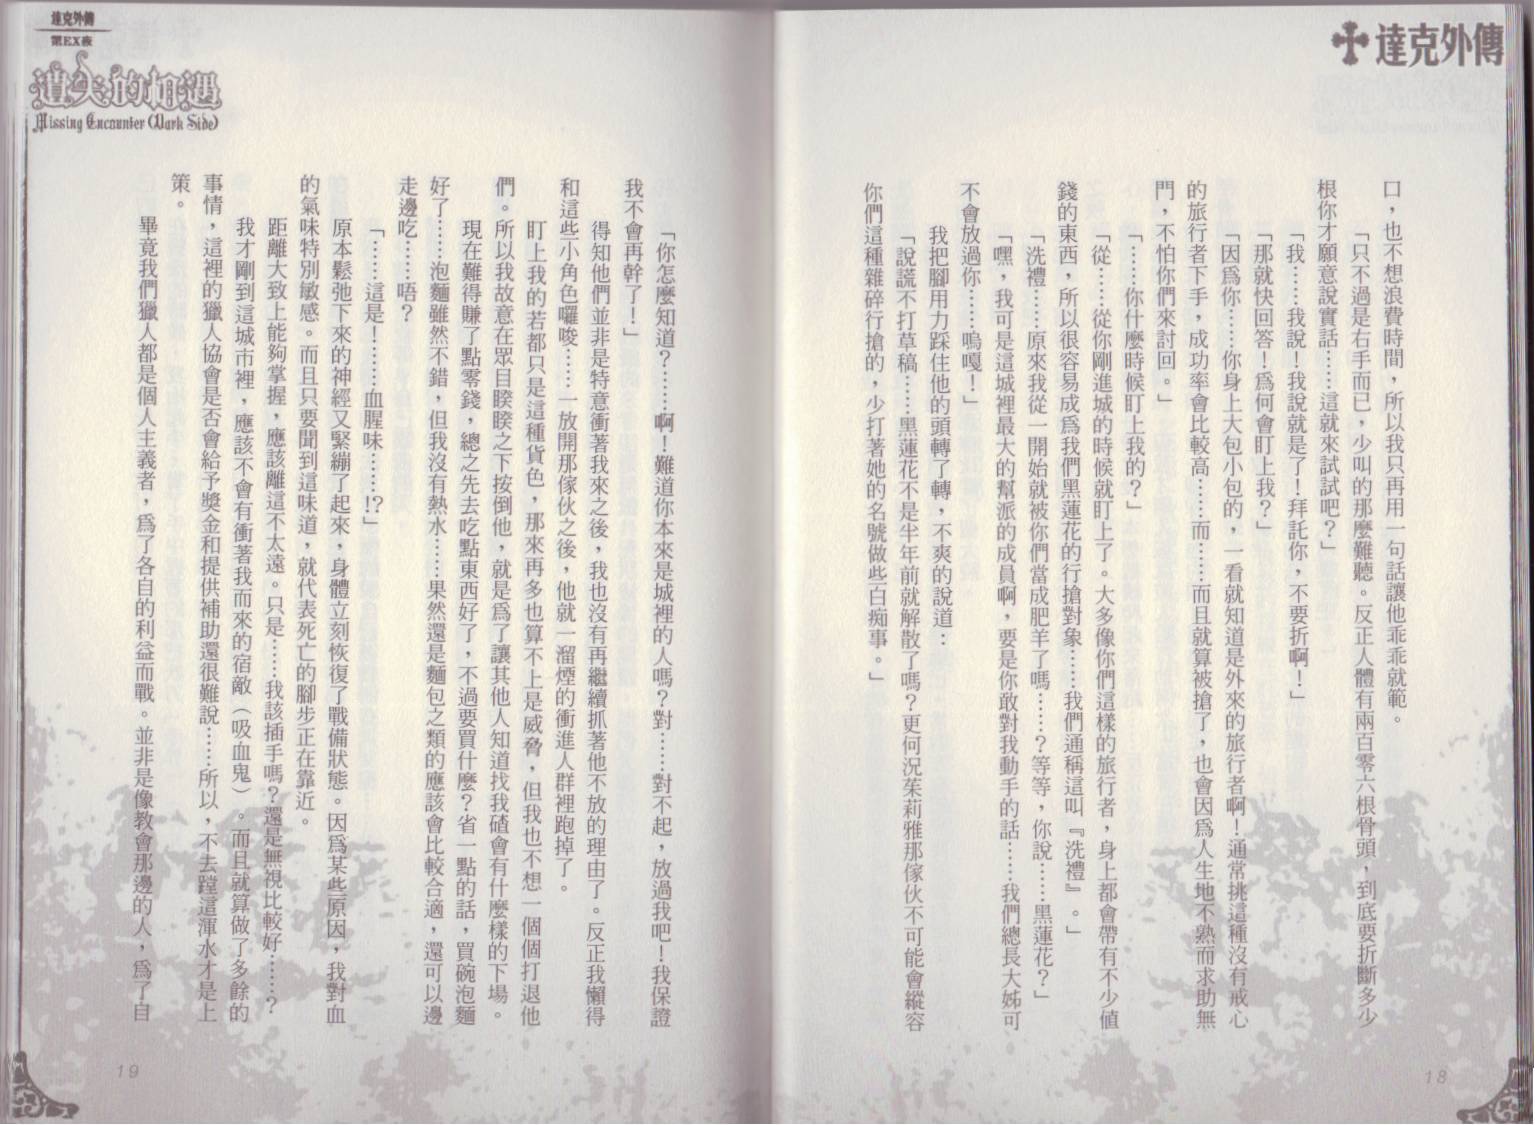 達克外傳
口，也不想浪費時間，所以我只再用一句話讓他乖乖就範。
「只不過是右手而已，少叫的那麼難聽。反正人體有兩百零六根骨頭，到底要折斷多少
根你才願意說實話……這就來試試吧？」
「我……我說！我說就是了！拜託你，不要折啊！」
「那就快回答！為何會盯上我？」
「因為你……你身上大包小包的，一看就知道是外來的旅行者啊！通常挑這種沒有戒心
的旅行者下手，成功率會比較高……而……而且就算被搶了，也會因為人生地不熟而求助無
門，不怕你們來討回。」
「……你什麼時候盯上我的？」
「從……從你剛進城的時候就盯上了。大多像你們這樣的旅行者，身上都會帶有不少值
錢的東西，所以很容易成為我們黑蓮花的行搶對象……我們通稱這叫『洗禮』。」
「洗禮……原來我從一開始就被你們當成肥羊了嗎……？等等，你說……黑蓮花？」
「嘿，我可是這城裡最大的幫派的成員啊，要是你敢對我動手的話……我們總長大姊可
不會放過你……嗚嘎！」
我把腳用力踩住他的頭轉了轉，不爽的說道：
「說謊不打草稿……黑蓮花不是半年前就解散了嗎？更何況茱莉雅那傢伙不可能會縱容
你們這種雜碎行搶的，少打著她的名號做些白痴事。」
18
達克外傳
第EX夜
遺失的相遇
Missing Encounter (Dark Side)
「你怎麼知道？……啊！難道你本來是城裡的人嗎？對……對不起，放過我吧！我保證
我不會再幹了！」
得知他們並非是特意衝著我來之後，我也沒有再繼續抓著他不放的理由了。反正我懶得
和這些小角色囉唆……一放開那傢伙之後，他就一溜煙的衝進人群裡跑掉了。
盯上我的若都只是這種貨色，那來再多也算不上是威脅，但我也不想一個個打退他
們。所以我故意在眾目睽睽之下按倒他，就是為了讓其他人知道找我碴會有什麼樣的下場。
現在難得賺了點零錢，總之先去吃點東西好了，不過要買什麼？省一點的話，買碗泡麵
好了……泡麵雖然不錯，但我沒有熱水……果然還是麵包之類的應該會比較合適，還可以邊
走邊吃……唔？
「……這是！……血腥味……!?」
原本鬆弛下來的神經又緊繃了起來，身體立刻恢復了戰備狀態。因為某些原因，我對血
的氣味特別敏感。而且只要聞到這味道，就代表死亡的腳步正在靠近。
距離大致上能夠掌握，應該離這不太遠。只是……我該插手嗎？還是無視比較好……？
我才剛到這城市裡，應該不會有衝著我而來的宿敵（吸血鬼）。而且就算做了多餘的
事情，這裡的獵人協會是否會給予獎金和提供補助還很難說……所以，不去蹚這渾水才是上
策。
畢竟我們獵人都是個人主義者，為了各自的利益而戰。並非是像教會那邊的人，為了自
19